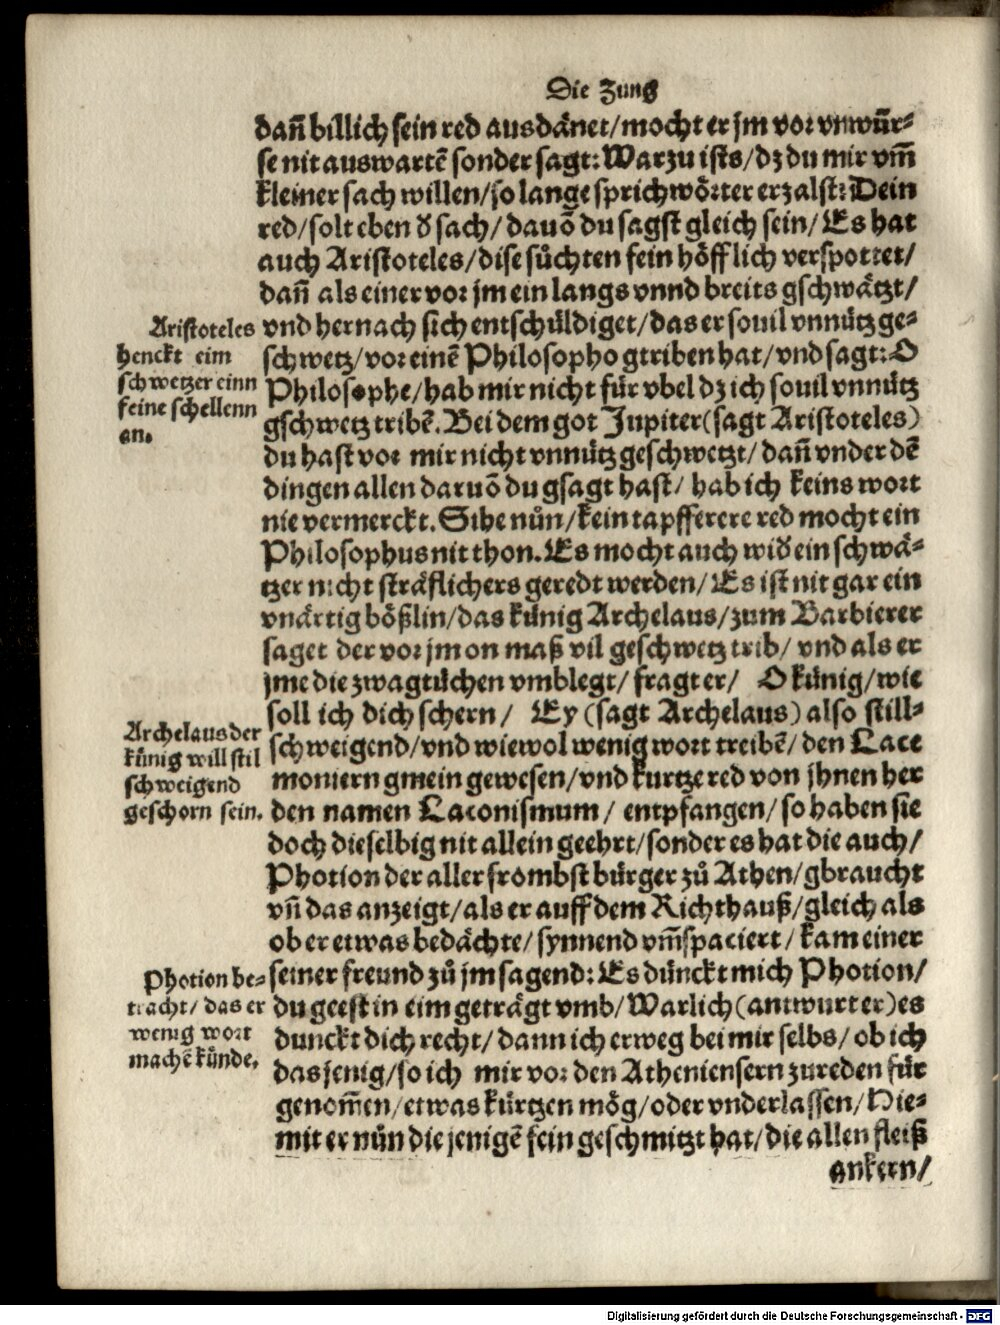 Die Zung
dañ billich sein red ausdänet/mocht er jm vor vnwür-
se nit auswartē sonder sagt: Warzu ists/dz du mir vm̄
kleiner sach willen/so lange sprichwörter erzalst: Dein
red/solt eben d̓ sach/dauō du sagst gleich sein/Es hat
auch Aristoteles/dise süchten fein höfflich verspottet/
dañ als einer vor jm ein langs vnnd breits gschwätzt/
vnd hernach sich entschüldiget/das er souil vnnütz ge-
schwetz/vor einē Philosopho gtriben hat/vnd sagt: O
Philosophe/hab mir nicht für vbel dz ich souil vnnütz
gschwetz tribē. Bei dem got Jupiter(sagt Aristoteles)
du hast vor mir nicht vnnütz geschwetzt/dañ vnder dē
dingen allen daruō du gsagt hast/hab ich keins wort
nie vermerckt. Sihe nůn/kein tapfferere red mocht ein
Philosophus nit thon. Es mocht auch wid̓ ein schwä-
tzer nicht sträflichers geredt werden/Es ist nit gar ein
vnärtig bößlin/das künig Archelaus/zum Barbierer
saget der vor jm on maß vil geschwetz trib/vnd als er
jme die zwagtüchen vmblegt/fragt er/ O künig/wie
soll ich dich schern/ Ey (sagt Archelaus) also still-
schweigend/vnd wiewol wenig wort treibē/den Lace
moniern gmein gewesen/vnd kurtze red von jhnen her
den namen Laconismum/ entpfangen/so haben sie
doch dieselbig nit allein geehrt/sonder es hat die auch/
Photion der aller frombst bürger zů Athen/gbraucht
vñ das anzeigt/als er auff dem Richthauß/gleich als
ob er etwas bedächte/synnend vm̄spaciert/kam einer
seiner freund zů jm sagend: Es dünckt mich Photion/
du geest in eim geträgt vmb/Warlich(antwurt er)es
dunckt dich recht/dann ich erweg bei mir selbs/ob ich
das jenig/so ich mir vor den Atheniensern zureden für
genom̄en/etwas kürtzen mög/oder vnderlassen/Hie-
mit er nůn die jenigē fein geschmitzt hat/die allen fleiß
ankern/
Aristoteles
henckt eim
schwetzer einn
feine schellenn
an.
Archelaus der
künig will stil
schweigend
geschorn sein.
Photion be-
tracht/das er
wenig wort
machē künde.
Digitalisierung gefördert durch die Deutsche Forschungsgemeinschaft - DFG